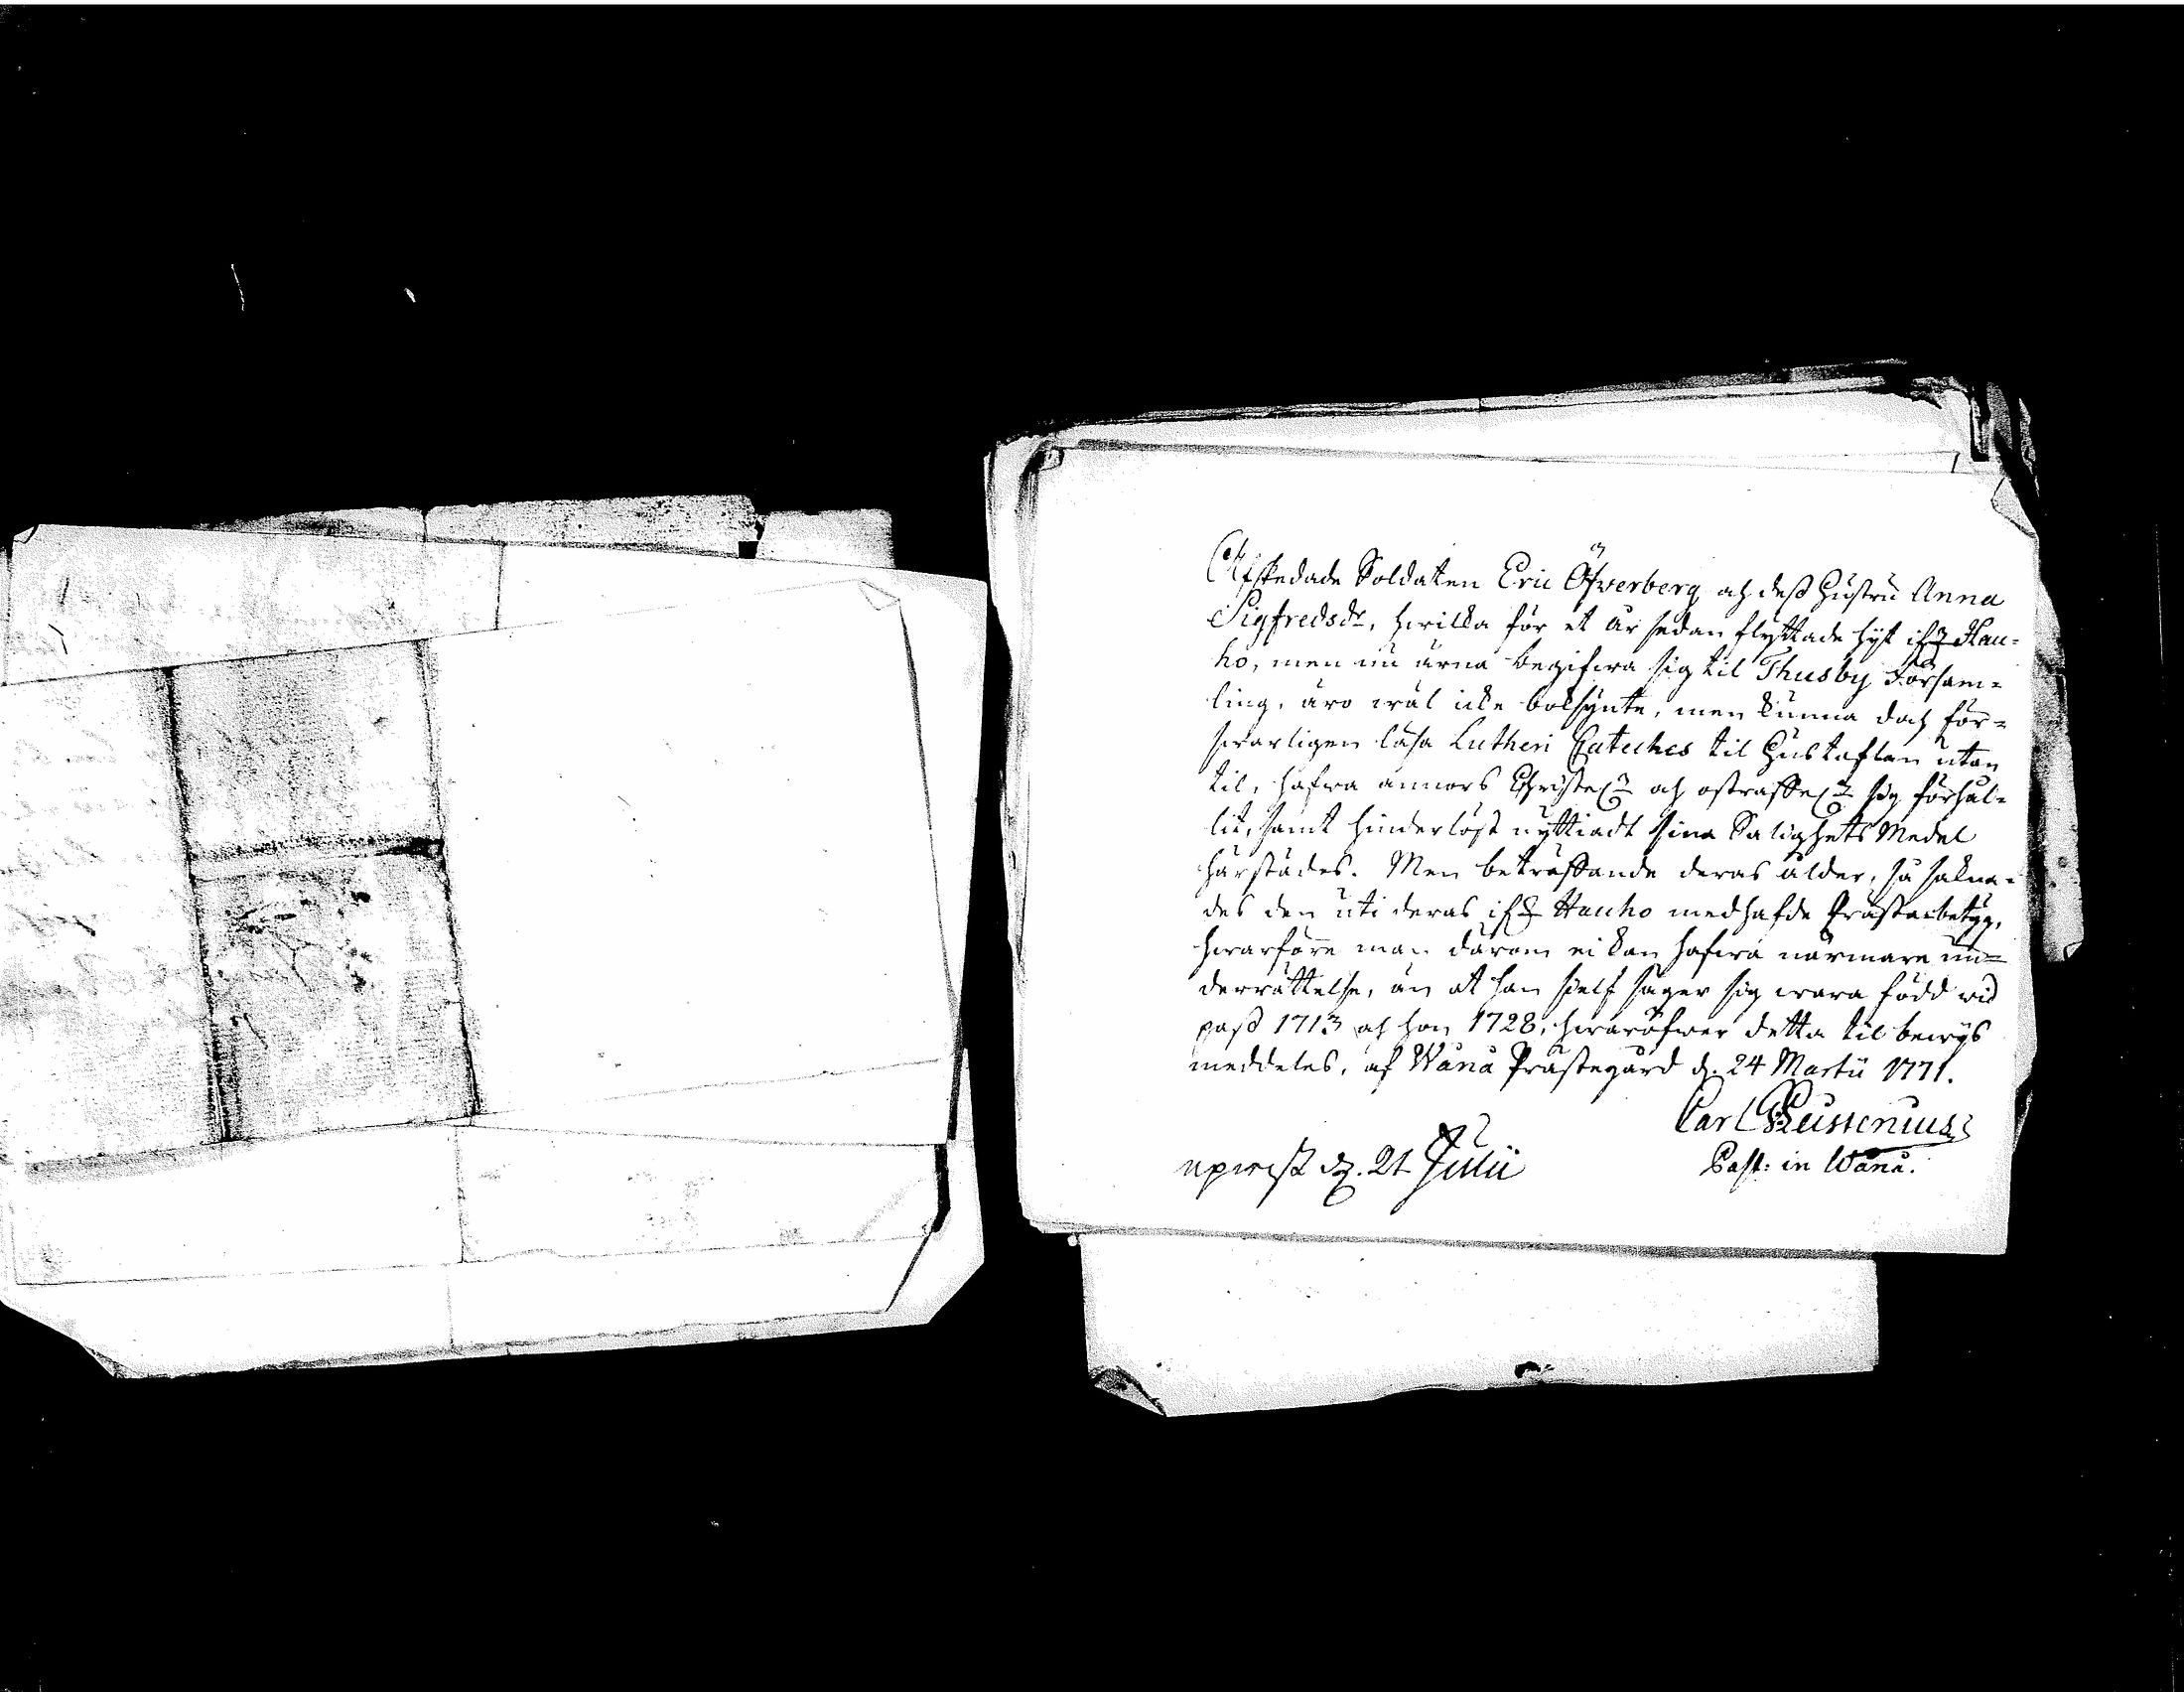 Afskedade Soldaten Eric Öfwerberg och dess Hustru Anna
Sigfredsdr, hwilka för et år sedan flyttade hijt ifr. Hau-
ho, men nu ärna begifwa sig til Thusby Försam-
ling, äro wäl icke boksynte, men kunna doch för-
swarligen läsa Lutheri Cateches til Hustaflan utan
til, hafwa annors Christel. och ostraffel. sig förhål-
lit, samt hinderlöst nyttiadt sina Salighets Medel
härstädes. Men beträffande deras ålder, så sakna-
des den uti deras ifr. Hauho medhafde Prästaebetyg,
hwarföre man därom ei kan hafwa närmare un-
derrättelse, än at han sielf säger sig wara född wid
pass 1713 och hon 1728, hwaröfwer detta til bewijs
meddeles, af Wånå Prästegård d. 24 Martii 1771.
Carl
Past: in Wånå.
upwist d. 21 Julii